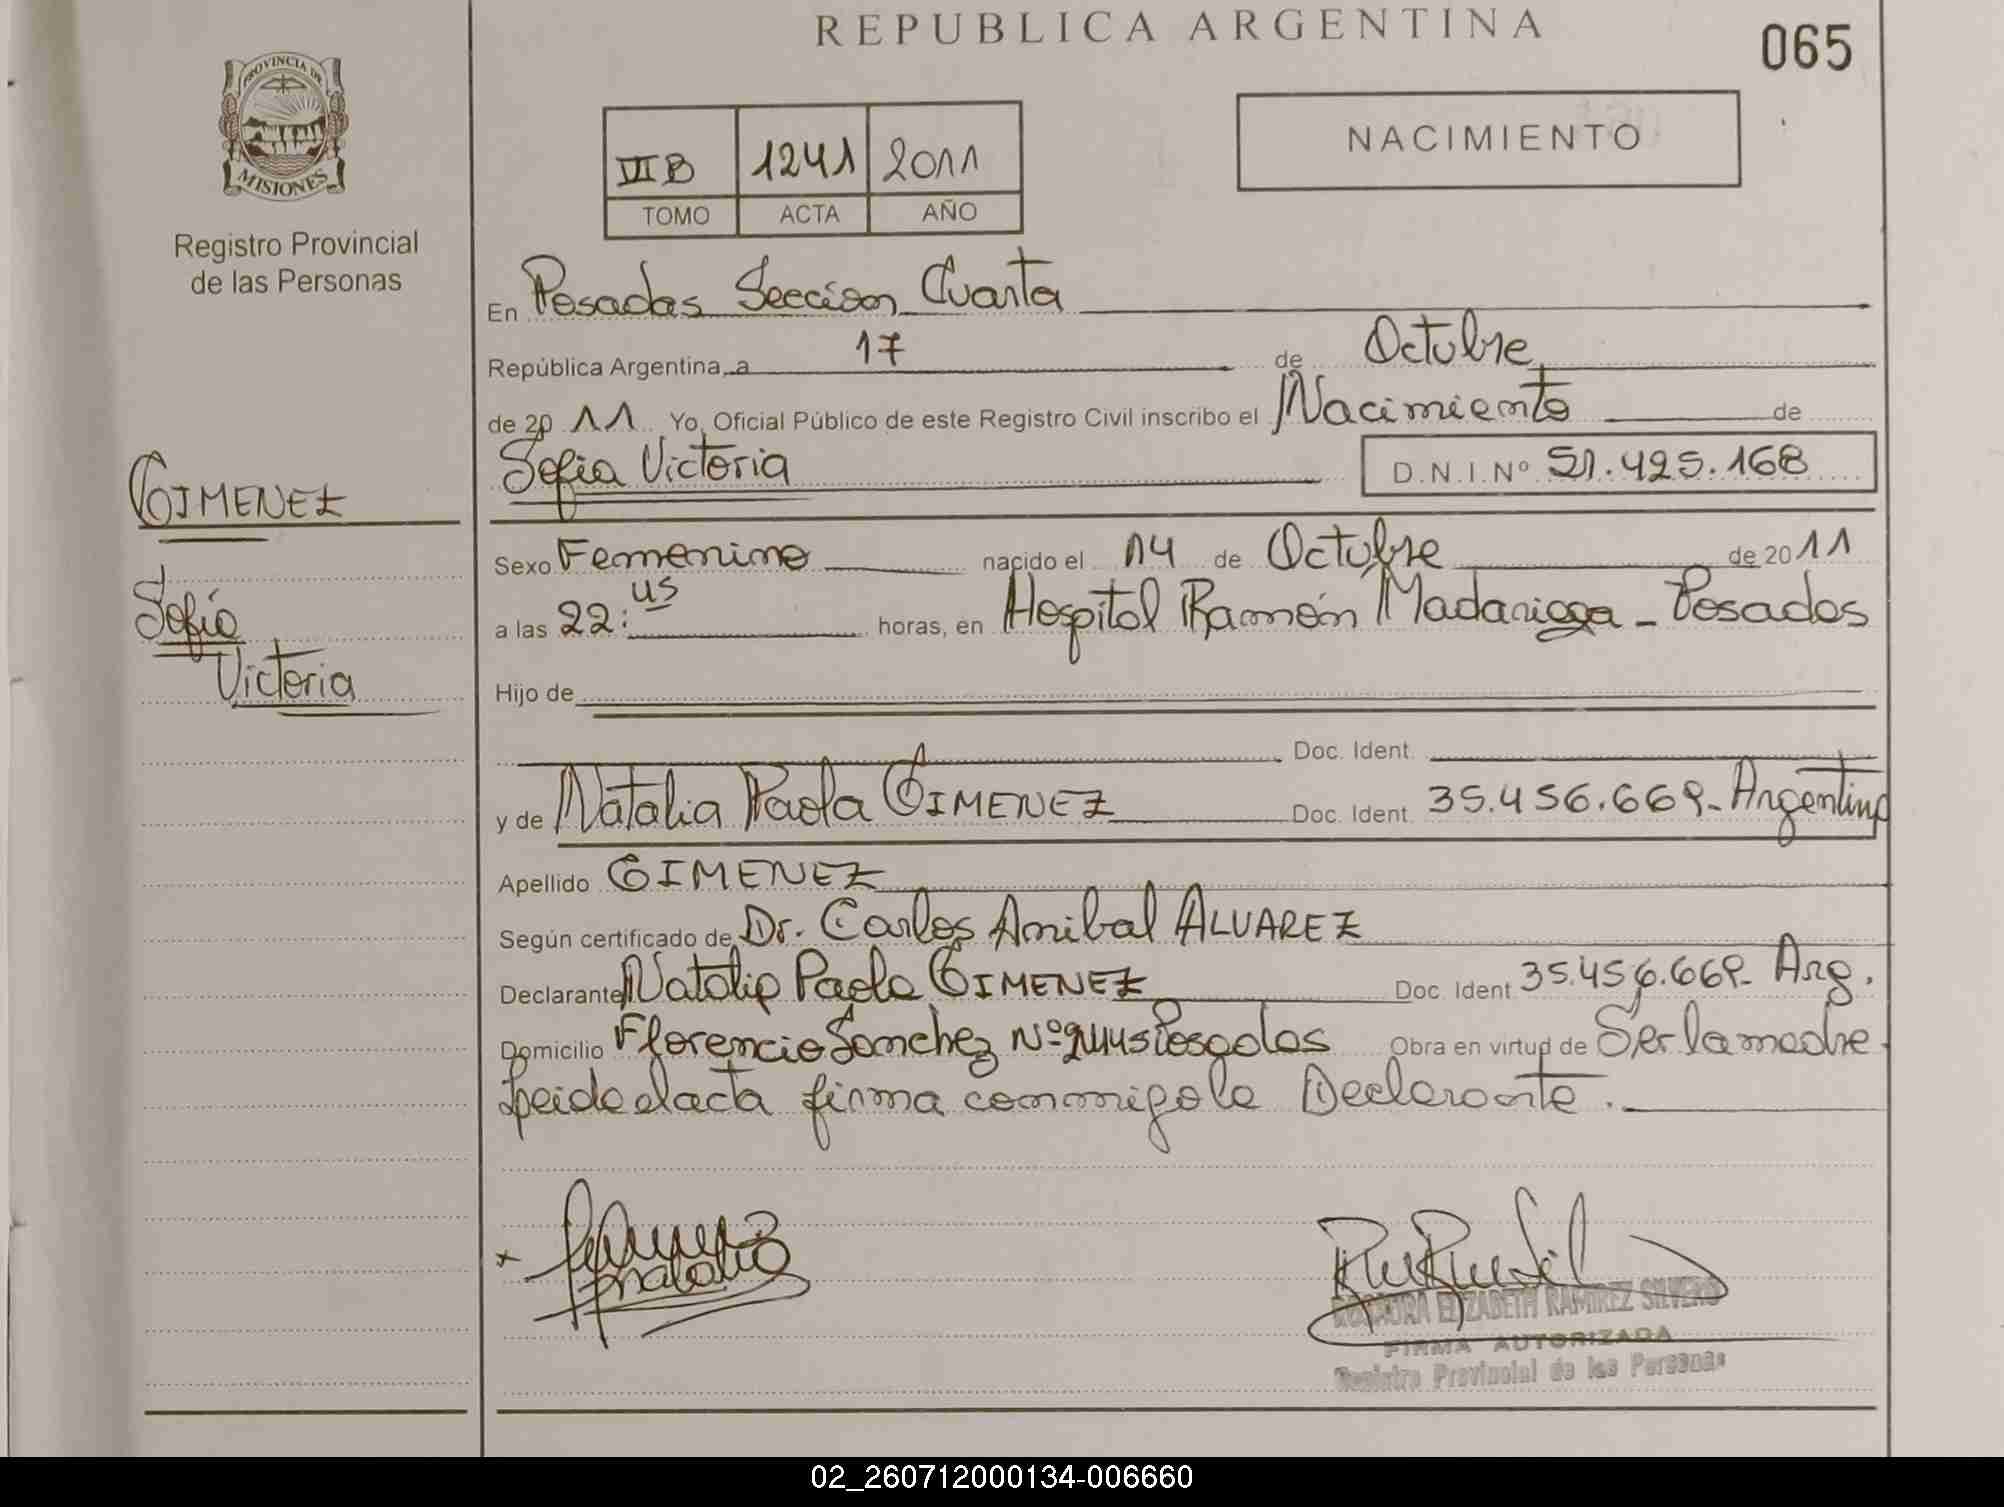 REPUBLICA ARGENTINA
065
PROVINCIA DE
MISIONES
Registro Provincial
de las Personas
NACIMIENTO
VII B 1241 2011
TOMO ACTA AÑO
En Posadas Sección Cuarta
República Argentina, a 17 de Octubre
de 2011 Yo, Oficial Público de este Registro Civil inscribo el Nacimiento de
Sofía Victoria D.N.I.Nº 51.425.168
GIMENEZ
Sofía
Victoria
Sexo Femenino nacido el 14 de Octubre de 2011
a las 22:45 horas, en Hospital Ramón Madariaga - Posadas
Hijo de
Doc. Ident.
y de Natalia Paola GIMENEZ Doc. Ident. 35.456.669- Argentina
Apellido GIMENEZ
Según certificado de Dr. Carlos Anibal ALVAREZ
Declarante Natalia Paola GIMENEZ Doc. Ident 35.456.669- Arg.
Domicilio Florencio Sanchez Nº 2445 Posadas Obra en virtud de Ser la madre.
Leida el acta firma conmigo la Declarante.
ELIZABETH RAMIREZ SILVERO
FIRMA AUTORIZADA
Registro Provincial de las Personas
02_260712000134-006660